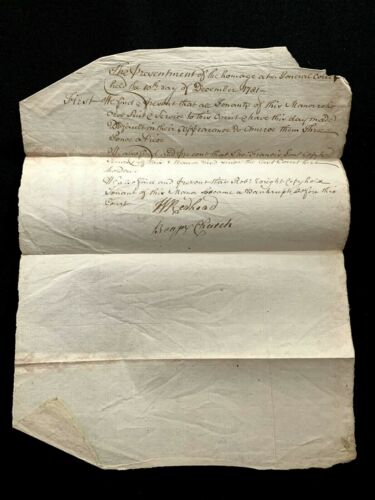 The Presentment of the homage at a Special Court
held the 10th Day of December 1781
First We find & present that all Tenants of this Manor who
Owe Suit & Service to this Court & have this day made
Default in their Appearance to Amerce them three
pence a piece
We also find & present that
of this Manor died since the last Court
We also find and present that Robt. Copyhold
Tenant of this Manor became a Bankrupt before this
Court
W Redhead
Church